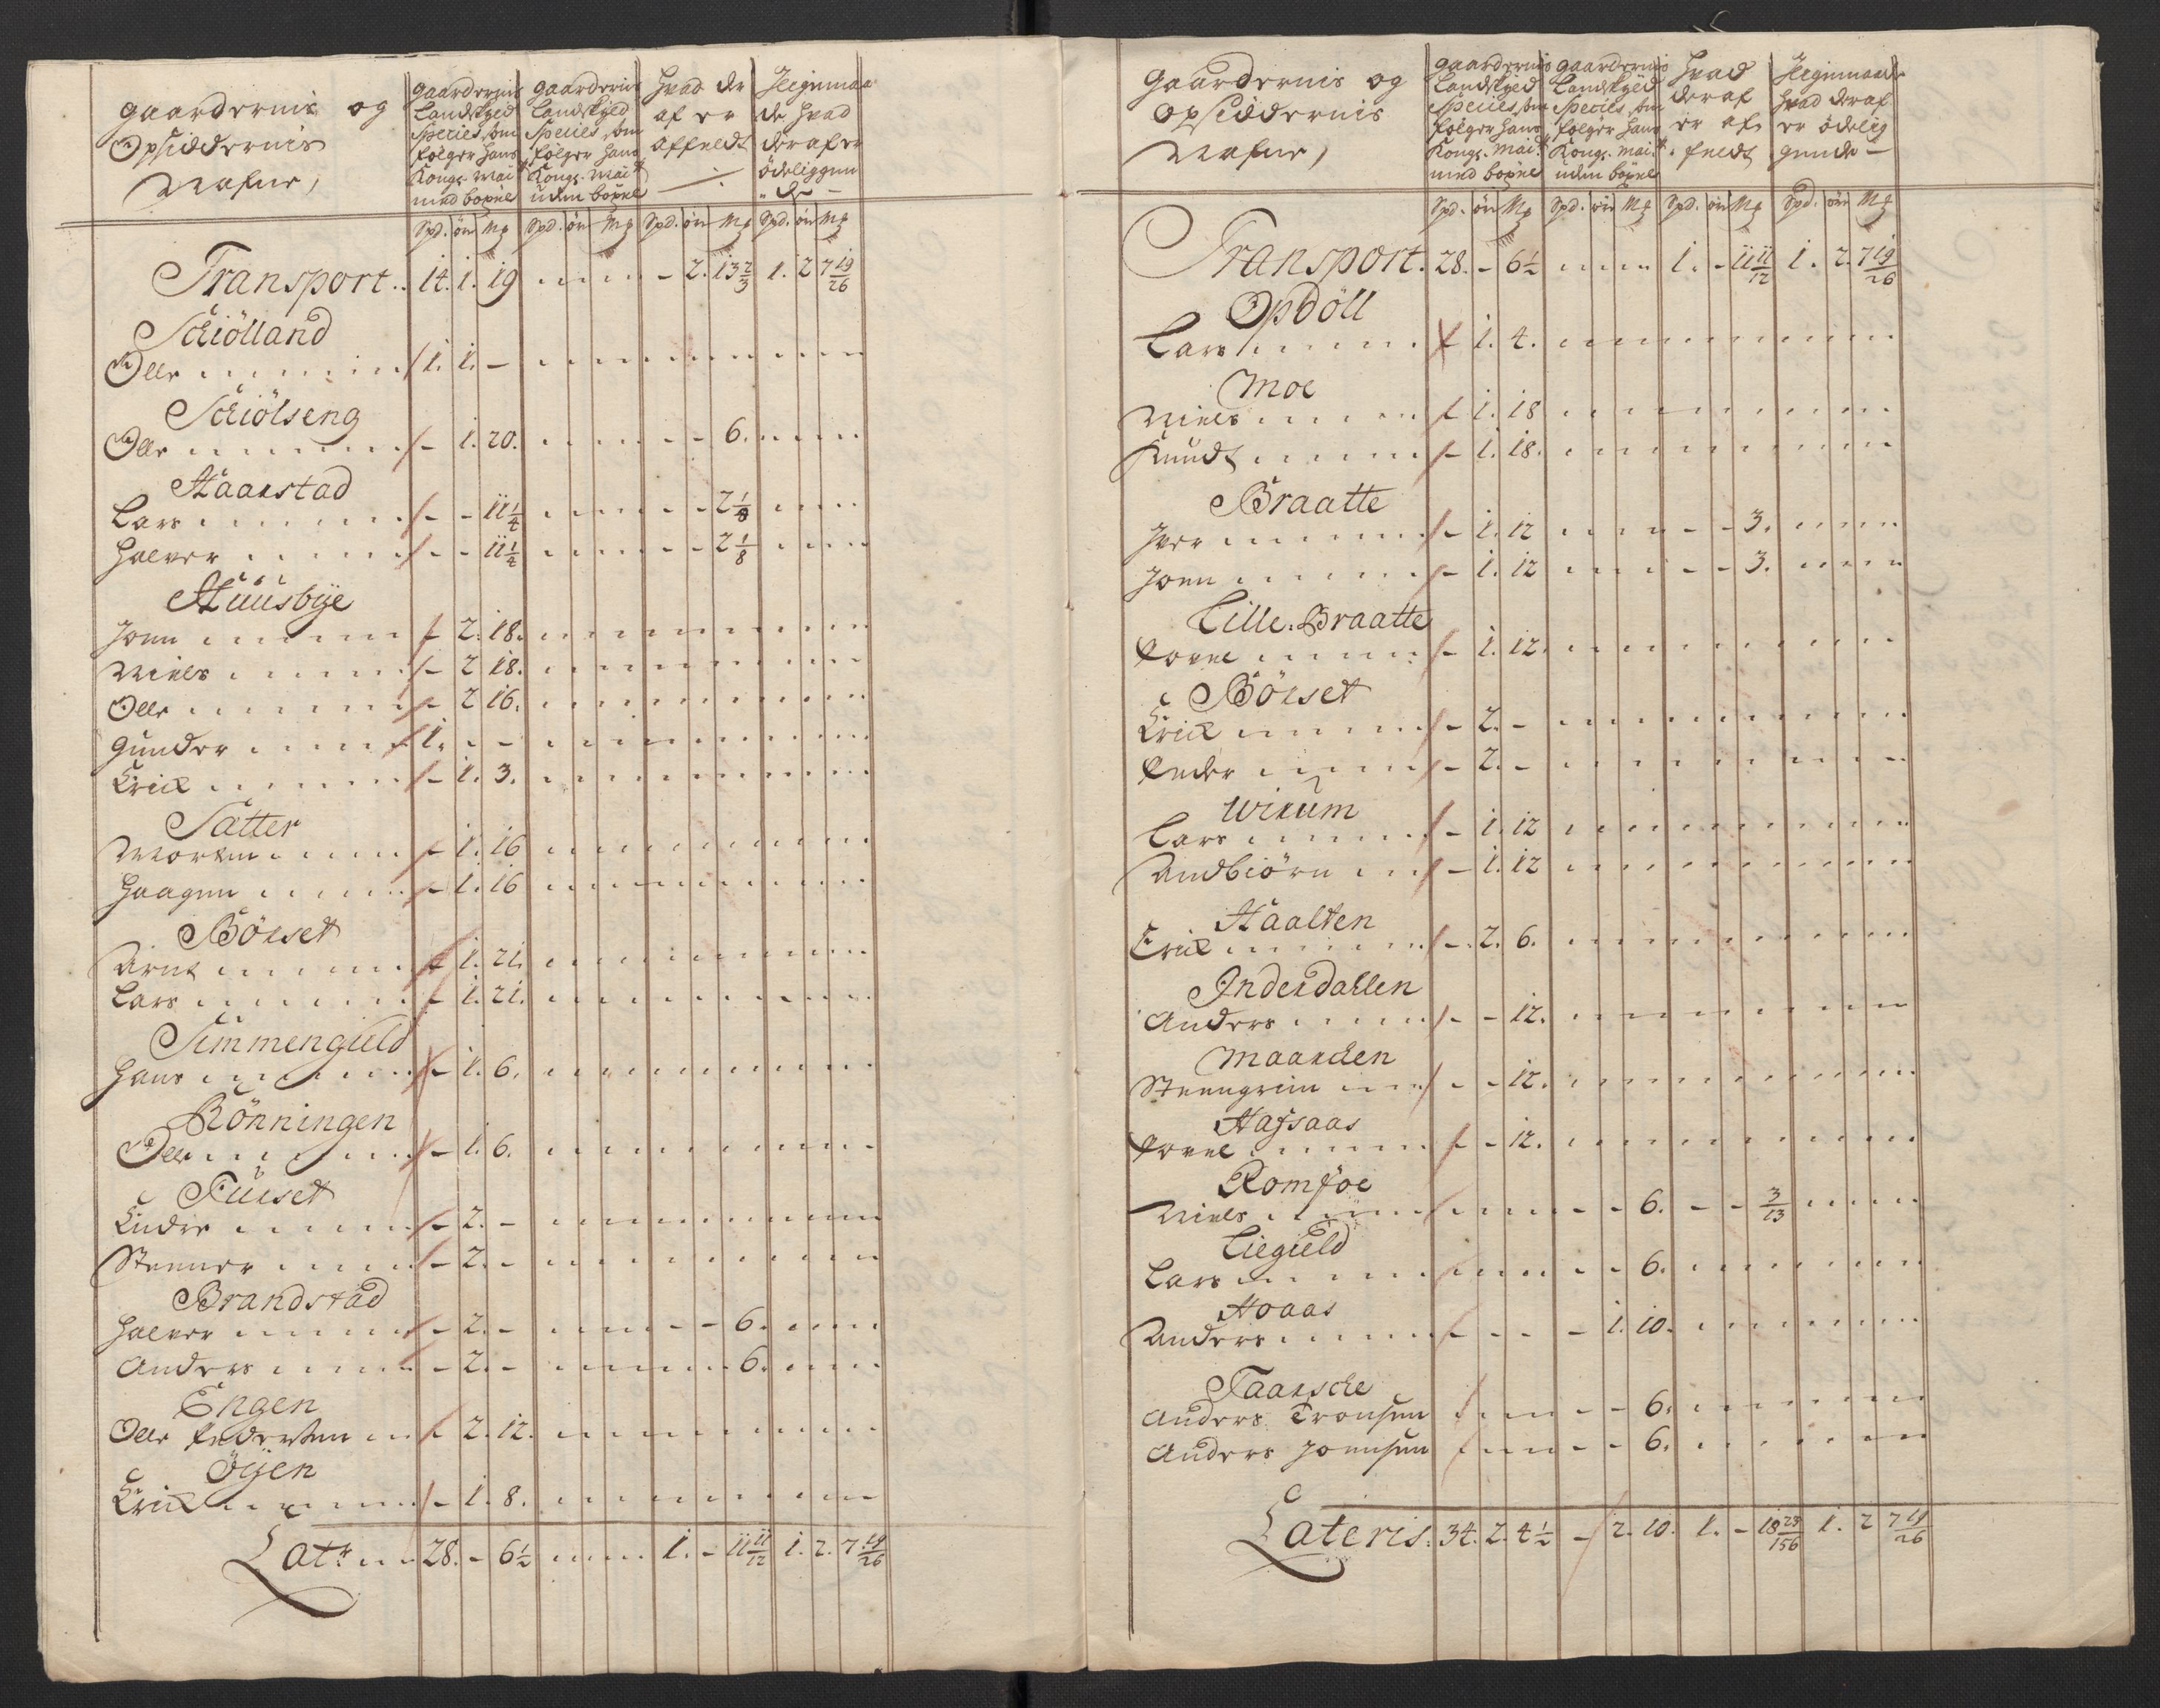 Gaardernis og
Opsiddernis
Nafne,
Gaardernis
Landskyld
Species, som
følger Hans
Kongs. Mait
med böxel
Gaardernis
Landskyld
Species, som
følger Hans
Kongs. Mait
uden böxel
Hvad der
af er
affeldt
de Hvad
deraf er
ödeliggun
de
Spd. ör Mk Spd. ör Mk Spd. ör Mk Spd. ör Mk
Transport 14. 1. 19 - 2. 13 2/3 1. 2 7 19/26
Schiölland
Olle 1. 1. -
Schiölseng
Olle - 1. 20. - - 6.
Haarstad
Lars - - 11 1/4 - - 2 1/8
Halvor - - 11 1/4 - - 2 1/8
Huusbye
Joen - 2. 18.
Niels - 2 18.
Olle - 2 16.
Gunder 1. - -
Erich - 1. 3.
Satter
Morten - 1. 16
Haagen - 1. 16
Börset
Arnt - 1. 21.
Lars - 1. 21.
Simmengield
Hans - 1. 6.
Rönningen
Olle - 1. 6.
Furset
Endre - 2. -
Steener - 2. -
Brandstad
Halvor - 2. - - - 6.
Anders - 2. - - 6.
Engen
Olle Pedersen - 2. 12.
Öyen
Erich - 1. 8.
Latr 28. - 6 1/2 1. - 11 11/12 1. 2. 7 19/26
Gaardernis og
Opsiddernis
Nafne,
Gaardernis
Landskyld
Species, som
følger Hans
Kongs. Mait
med böxel
Gaardernis
Landskyld
Species, som
følger Hans
Kongs. Mait
uden böxel
Hvad
deraf
er af
feldt
Hvad deraf
er ödelig
gunde -
Spd. ör Mk Spd. ör Mk Spd. ör Mk Spd. ör Mk
Transport. 28. - 6 1/2 1. - 11 11/12 1. 2. 7 19/26
Opdöll
Lars - 1. 4.
Moe
Niels - 1. 18
Knudt - 1. 18.
Braatte
Iver - 1. 12 - - 3.
Joen - 1. 12 - - 3.
Lille Braatte
Povel - 1. 12.
Börset
Erich - 2. -
Peder - 2. -
Wikum
Lars - 1. 12
Andbiörn - 1. 12
Haalten
Erich - 2. 6.
Inderdallen
Anders - - 12.
Steengrim - - 12.
Hafsaas
Povel - - 12.
Romföe
Niels - - 6. - - 3/13
Liegield
Lars - - 6.
Hoaas
Anders - 1. 10.
Anders Tronsen - - 6.
Anders Joensen - - 6.
Lateris. 34. 2. 4 1/2 - 2. 10. 1. - 18 23/156 1. 2 7 19/26